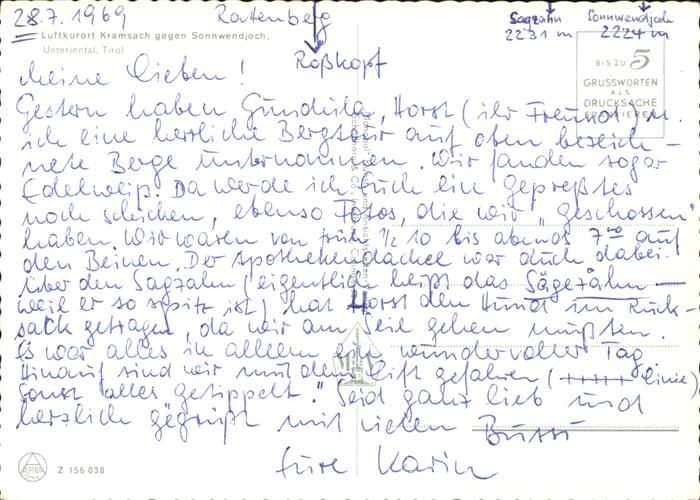 28.7.1969 Rattenberg Sagzahn Sonnwendjoch
2231 m 2224 m
Luftkurort Kramsach gegen Sonnwendjoch,
Unterinntal, Tirol
Roßkopf
BIS ZU 5
GRUSSWORTEN
ALS
DRUCKSACHE
FRANKIEREN
Meine Lieben!
Gestern haben Gundula, Horst (ihr Freund) u.
ich eine herrliche Bergtour auf oben bezeich-
nete Berge unternommen. Wir fanden sogar
Edelweiß. Da werde ich Euch ein gepreßtes
noch schicken, ebenso Fotos, die wir "geschossen"
haben. Wir waren von früh ½ 10 bis abends 7⁰⁰ auf
den Beinen. Der Apothekendackel war auch dabei.
Über den Sagzahn (eigentlich heißt das Sägezahn
weil er so spitz ist) hat Horst den Hund im Ruck-
sack getragen, da wir am Seil gehen mußten.
Es war alles in allem ein wundervoller Tag
Hinauf sind wir mit dem Lift gefahren (+++++ Linie)
Sonst alles "getippelt." Seid ganz lieb und
herzlich gegrüßt mit vielen Bussi
Eure Karin
ALPINA
Z 156 038